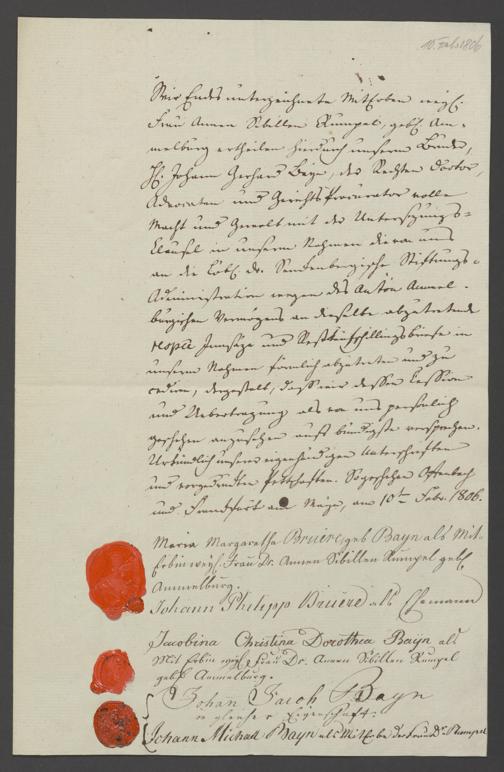 10. Febr. 1806
Wir Endes unterzeichnete MitErben weyl.
Frau Annen Sibillen Rumpel, gebl. Am-
melburg ertheilen hierdurch unserm Bruder,
H. Johann Gerhard Bayn, der Rechten Doctor,
Advocaten und GerichtsProcurator volle
Macht und Gewalt mit der
Clausel in unserm Nahmen die von uns
an die Löbl. Dr. Senckenbergische Stiftungs-
Administration wegen des Anton Ammel-
burgischen Vermögens an dieselbe abzutretende
respce Innsäze und Restkaufschillingsbriefe in
unserm Nahmen förmlich abzutreten und zu
cediren, dergestalt, dass wir dessen Cession
und Uebertragung als von uns persönlich
geschehen anzusehen aufs bündigste versprechen.
Urkundlich unserer eigenhändigen Unterschriften
und vorgedruckten Pettschaften. So geschehen Offenbach
und Frankfurt am Mayn, am 10ten Febr. 1806.
Maria Margaretha Bruere, geb Bayn als Mit-
Erbin weyl. Frau Dr. Annen Sibillen Rumpel gebl.
Ammelburg.
Johann Philipp Bruere als Ehemann
Jacobina Christina Dorothea Bayn als
Mit Erbin weyl. Frau Dr. Annen Sibillen Rumpel
gebl. Ammelburg.
Johan Jacob Bayn
in gleicher Eigenschaft.
Johann Michael Bayn als MitErbe der Frau Dr. Rumpel